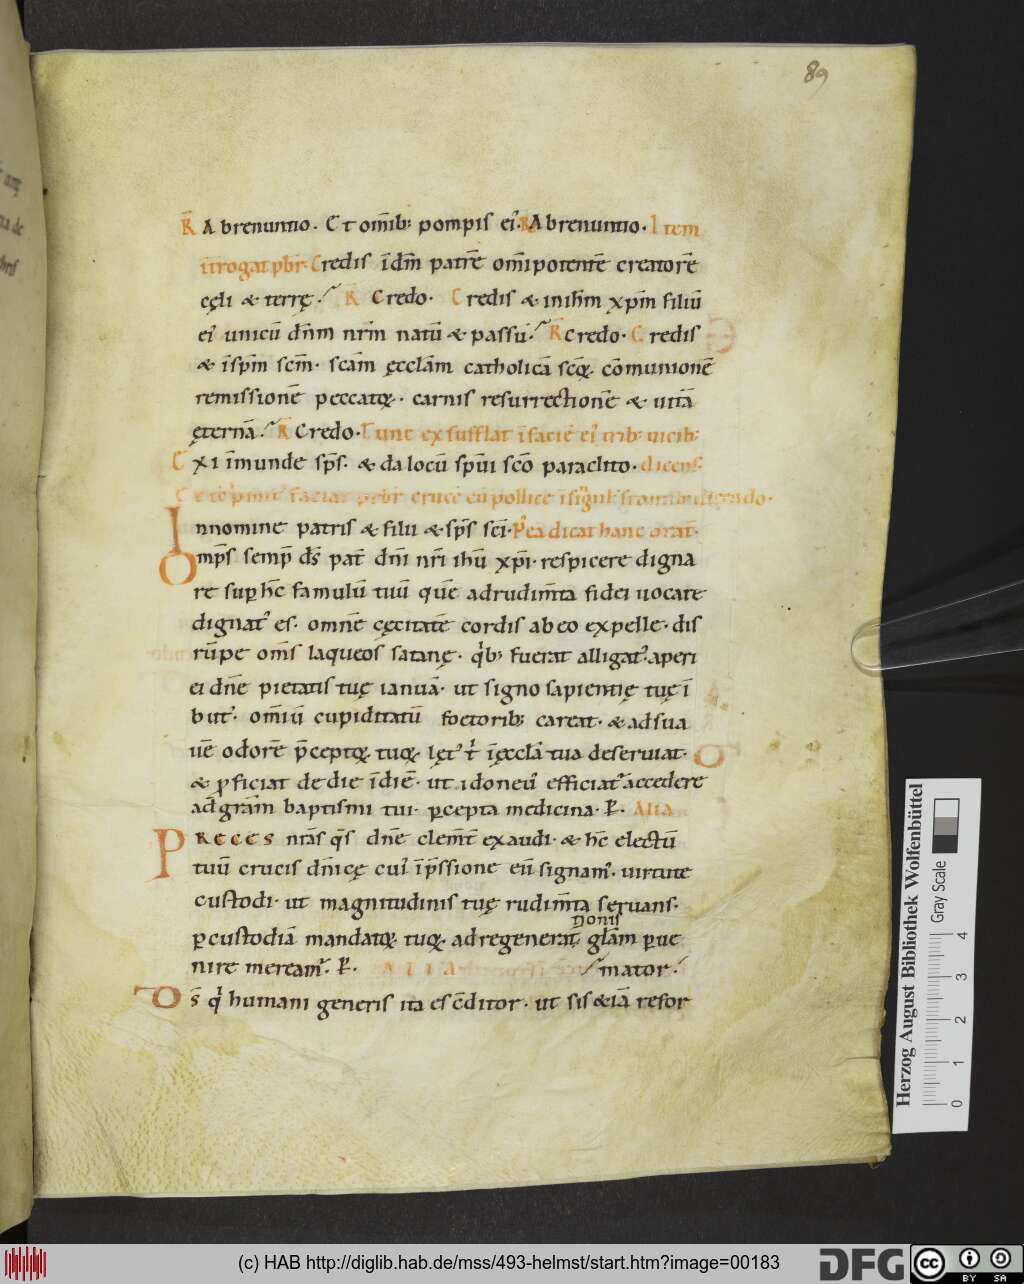 89
R̄ Abrenuntio. Et om̄ib; pompis ei᾽. R̄ Abrenuntio. Item
īt̄rogat p̄br. Credis īdm̄ patrē om̄ipotentē creatorē
cęli & terrę. R̄ Credo. Credis & inih̄m xp̄m filiū
ei᾽ unicū dn̄m nr̄m natū & passū. R̄ Credo. Credis
& īsp̄m sc̄m. scam̄ ęccłam catholicā scꝝ. cōmunionē
remissionē peccatoꝝ. carnis resurrectionē & uitā
ęternā. R̄ Credo. Tunc exsufflat īfaciē ei᾽ trib; uicib;
Exi īmunde sp̄s. & da locū sp̄ui sc̄o paraclito. dicens.
faciat p̄br crucē cū pollice
Innomine patris & filii & sp̄s sc̄i. P᾽ea dicat hanc orat̄.
Omp̄s semp̄ ds̄ pat̄ dn̄i nr̄i ih̄u xp̄i. respicere digna
re suꝑ hc̄ famulū tuū quē adrudim̄ta fidei uocare
dignat᾽ es. omnē cęcitatē cordis abeo expelle. dis
rūpe om̄s laqueos satanę. qͥb; fuerat alligat᾽. aperi
ei dn̄e pietatis tuę ianuā. ut signo sapientię tuę ī
but᾽. om̄iū cupiditatū foetorib; careat. & adsua
uē odorē p̄ceptoꝝ tuoꝝ lęt᾽ t᾽ īęccła tua deseruiat.
& ꝓficiat de die īdiē. ut idoneu᾽ efficiat᾽ accedere
ad̄ gram̄ baptismi tui. ꝑcepta medicina. P̄. Alia
Preces nr̄as qs̄ dn̄e clem̄t̄ exaudi. & hc̄ electū
tuū crucis dn̄icę cui᾽ īp̄ssione eū signam᾽. uirtute
custodi. ut magnitudinis tuę rudim̄ta seruans.
donis
ꝑcustodiā mandatoꝝ tuoꝝ. adregenerat̄ głam ꝑue
nire meream᾽. P̄. ALIA mator.
Ds̄ qͥ humani generis ita es c̄ditor. ut sis & iā refor
Herzog August Bibliothek Wolfenbüttel
Gray Scale
0 1 2 3 4
(c) HAB http://diglib.hab.de/mss/493-helmst/start.htm?image=00183
DFG
cc BY SA